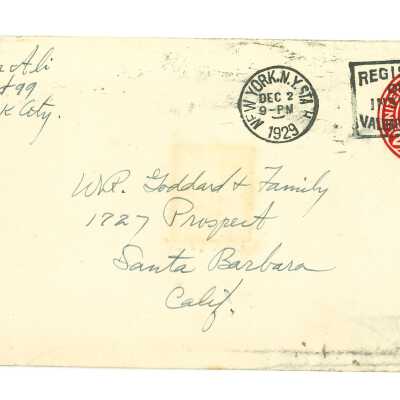 Ali
99
City.
NEW YORK, N.Y. STA
DEC 2
9-PM
1929
REGIS
IN
VALU
UNITE
W.R. Goddard & Family
1727 Prospect
Santa Barbara
Calif.